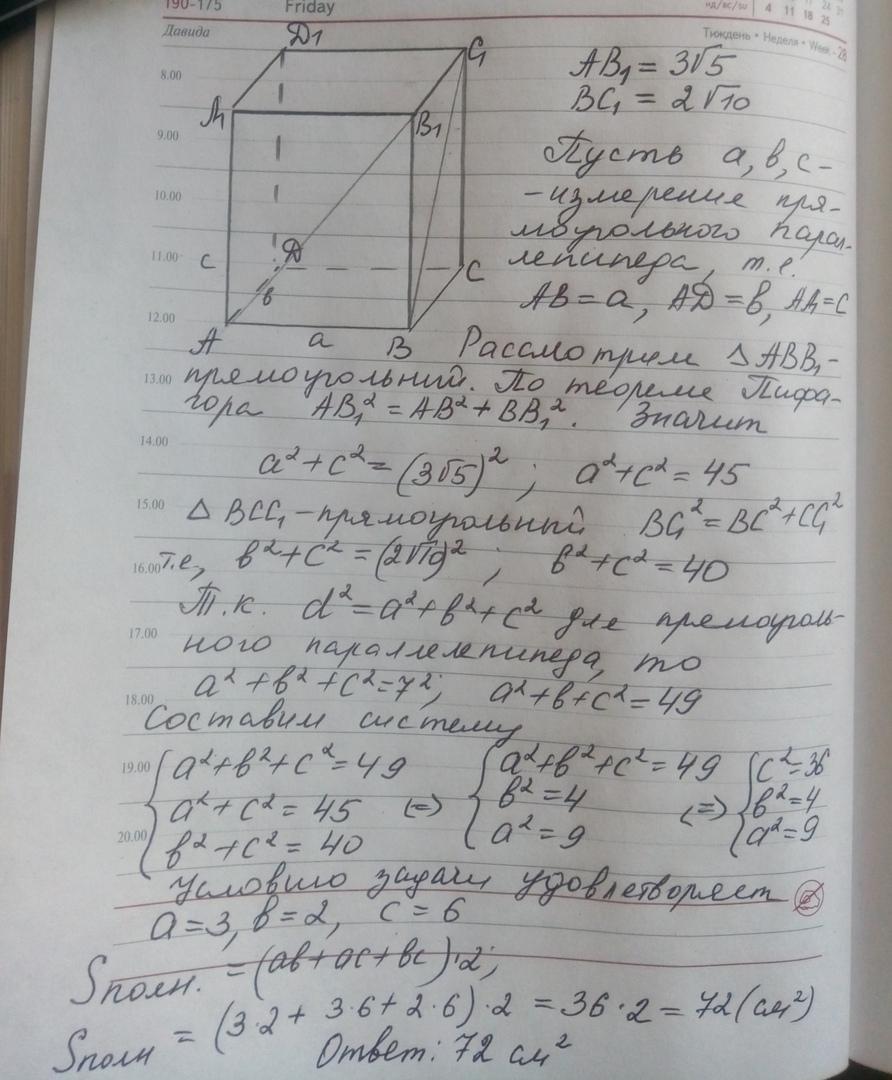 190-175 Friday
нд/вс/su 4 11 18 25
Давида
Тиждень • Неделя • Week - 28
8.00
9.00
10.00
11.00
12.00
13.00
14.00
15.00
16.00
17.00
18.00
19.00
20.00
Д1
C1
A1
B1
Д
C
c
в
A
a
B
AB₁ = 3√5
BC₁ = 2√10
Пусть a, в, c -
- измерение пря-
моугольного парал-
лепипеда, т.е.
AB = a, AД = в, AA₁ = c
Рассмотрим △ ABB₁ -
прямоугольний. По теореме Пифа-
гора AB₁² = AB² + BB₁². Значит
a² + c² = (3√5)²; a² + c² = 45
△ BCC₁ - прямоугольный BC₁² = BC² + CC₁²
т.е., в² + c² = (2√10)²; в² + c² = 40
Т.к. d² = a² + в² + c² для прямоуголь-
ного параллелепипеда, то
a² + в² + c² = 7²; a² + в + c² = 49
Составим систему
{ a² + в² + c² = 49 { a² + в² + c² = 49 { c² = 36
a² + c² = 45 <=> в² = 4 <=> в² = 4
в² + c² = 40 a² = 9 a² = 9
Условию задачи удовлетворяет
a = 3, в = 2, c = 6
Sполн. = (aв + ac + вc)·2;
Sполн = (3·2 + 3·6 + 2·6)·2 = 36·2 = 72 (см²)
Ответ: 72 см²